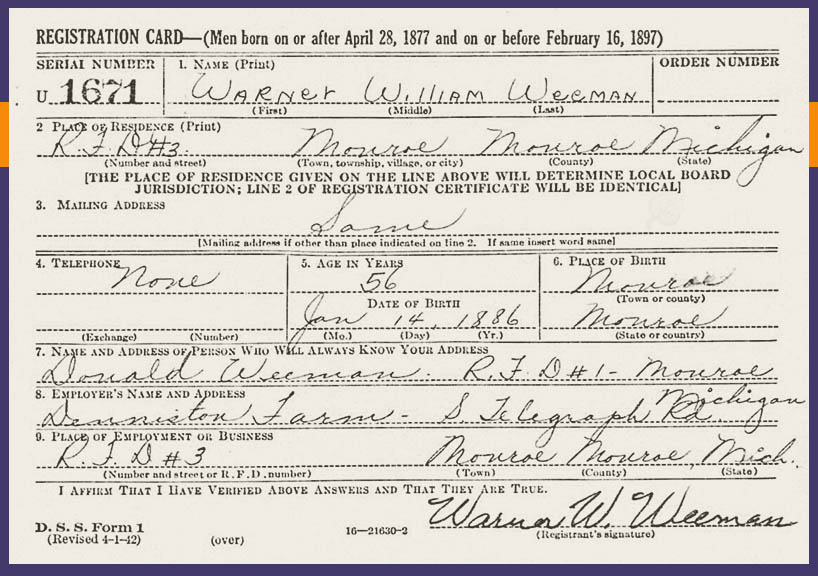 REGISTRATION CARD—(Men born on or after April 28, 1877 and on or before February 16, 1897)
SERIAL NUMBER 1. NAME (Print) ORDER NUMBER
U 1671 WARNEr WIllIAM WEEMAN
(First) (Middle) (Last)
2 PLACE OF RESIDENCE (Print)
R.F.D #3. Monroe Monroe Michigan
(Number and street) (Town, township, village, or city) (County) (State)
[THE PLACE OF RESIDENCE GIVEN ON THE LINE ABOVE WILL DETERMINE LOCAL BOARD
JURISDICTION; LINE 2 OF REGISTRATION CERTIFICATE WILL BE IDENTICAL]
3. MAILING ADDRESS
Same
[Mailing address if other than place indicated on line 2. If same insert word same]
4. TELEPHONE 5. AGE IN YEARS 6. PLACE OF BIRTH
None 56 Monroe
DATE OF BIRTH (Town or county)
Jan 14, 1886 Monroe
(Exchange) (Number) (Mo.) (Day) (Yr.) (State or country)
7. NAME AND ADDRESS OF PERSON WHO WILL ALWAYS KNOW YOUR ADDRESS
Donald Weeman. R.F.D #1 - Monroe
8. EMPLOYER'S NAME AND ADDRESS Michigan
Denniston Farm - S. Telegraph Rd.
9. PLACE OF EMPLOYMENT OR BUSINESS
R.F.D #3 Monroe Monroe, Mich.
(Number and street or R. F. D. number) (Town) (County) (State)
I AFFIRM THAT I HAVE VERIFIED ABOVE ANSWERS AND THAT THEY ARE TRUE.
Warner W. Weeman
D. S. S. Form 1
(Revised 4-1-42) (over) 16—21630-2 (Registrant's signature)